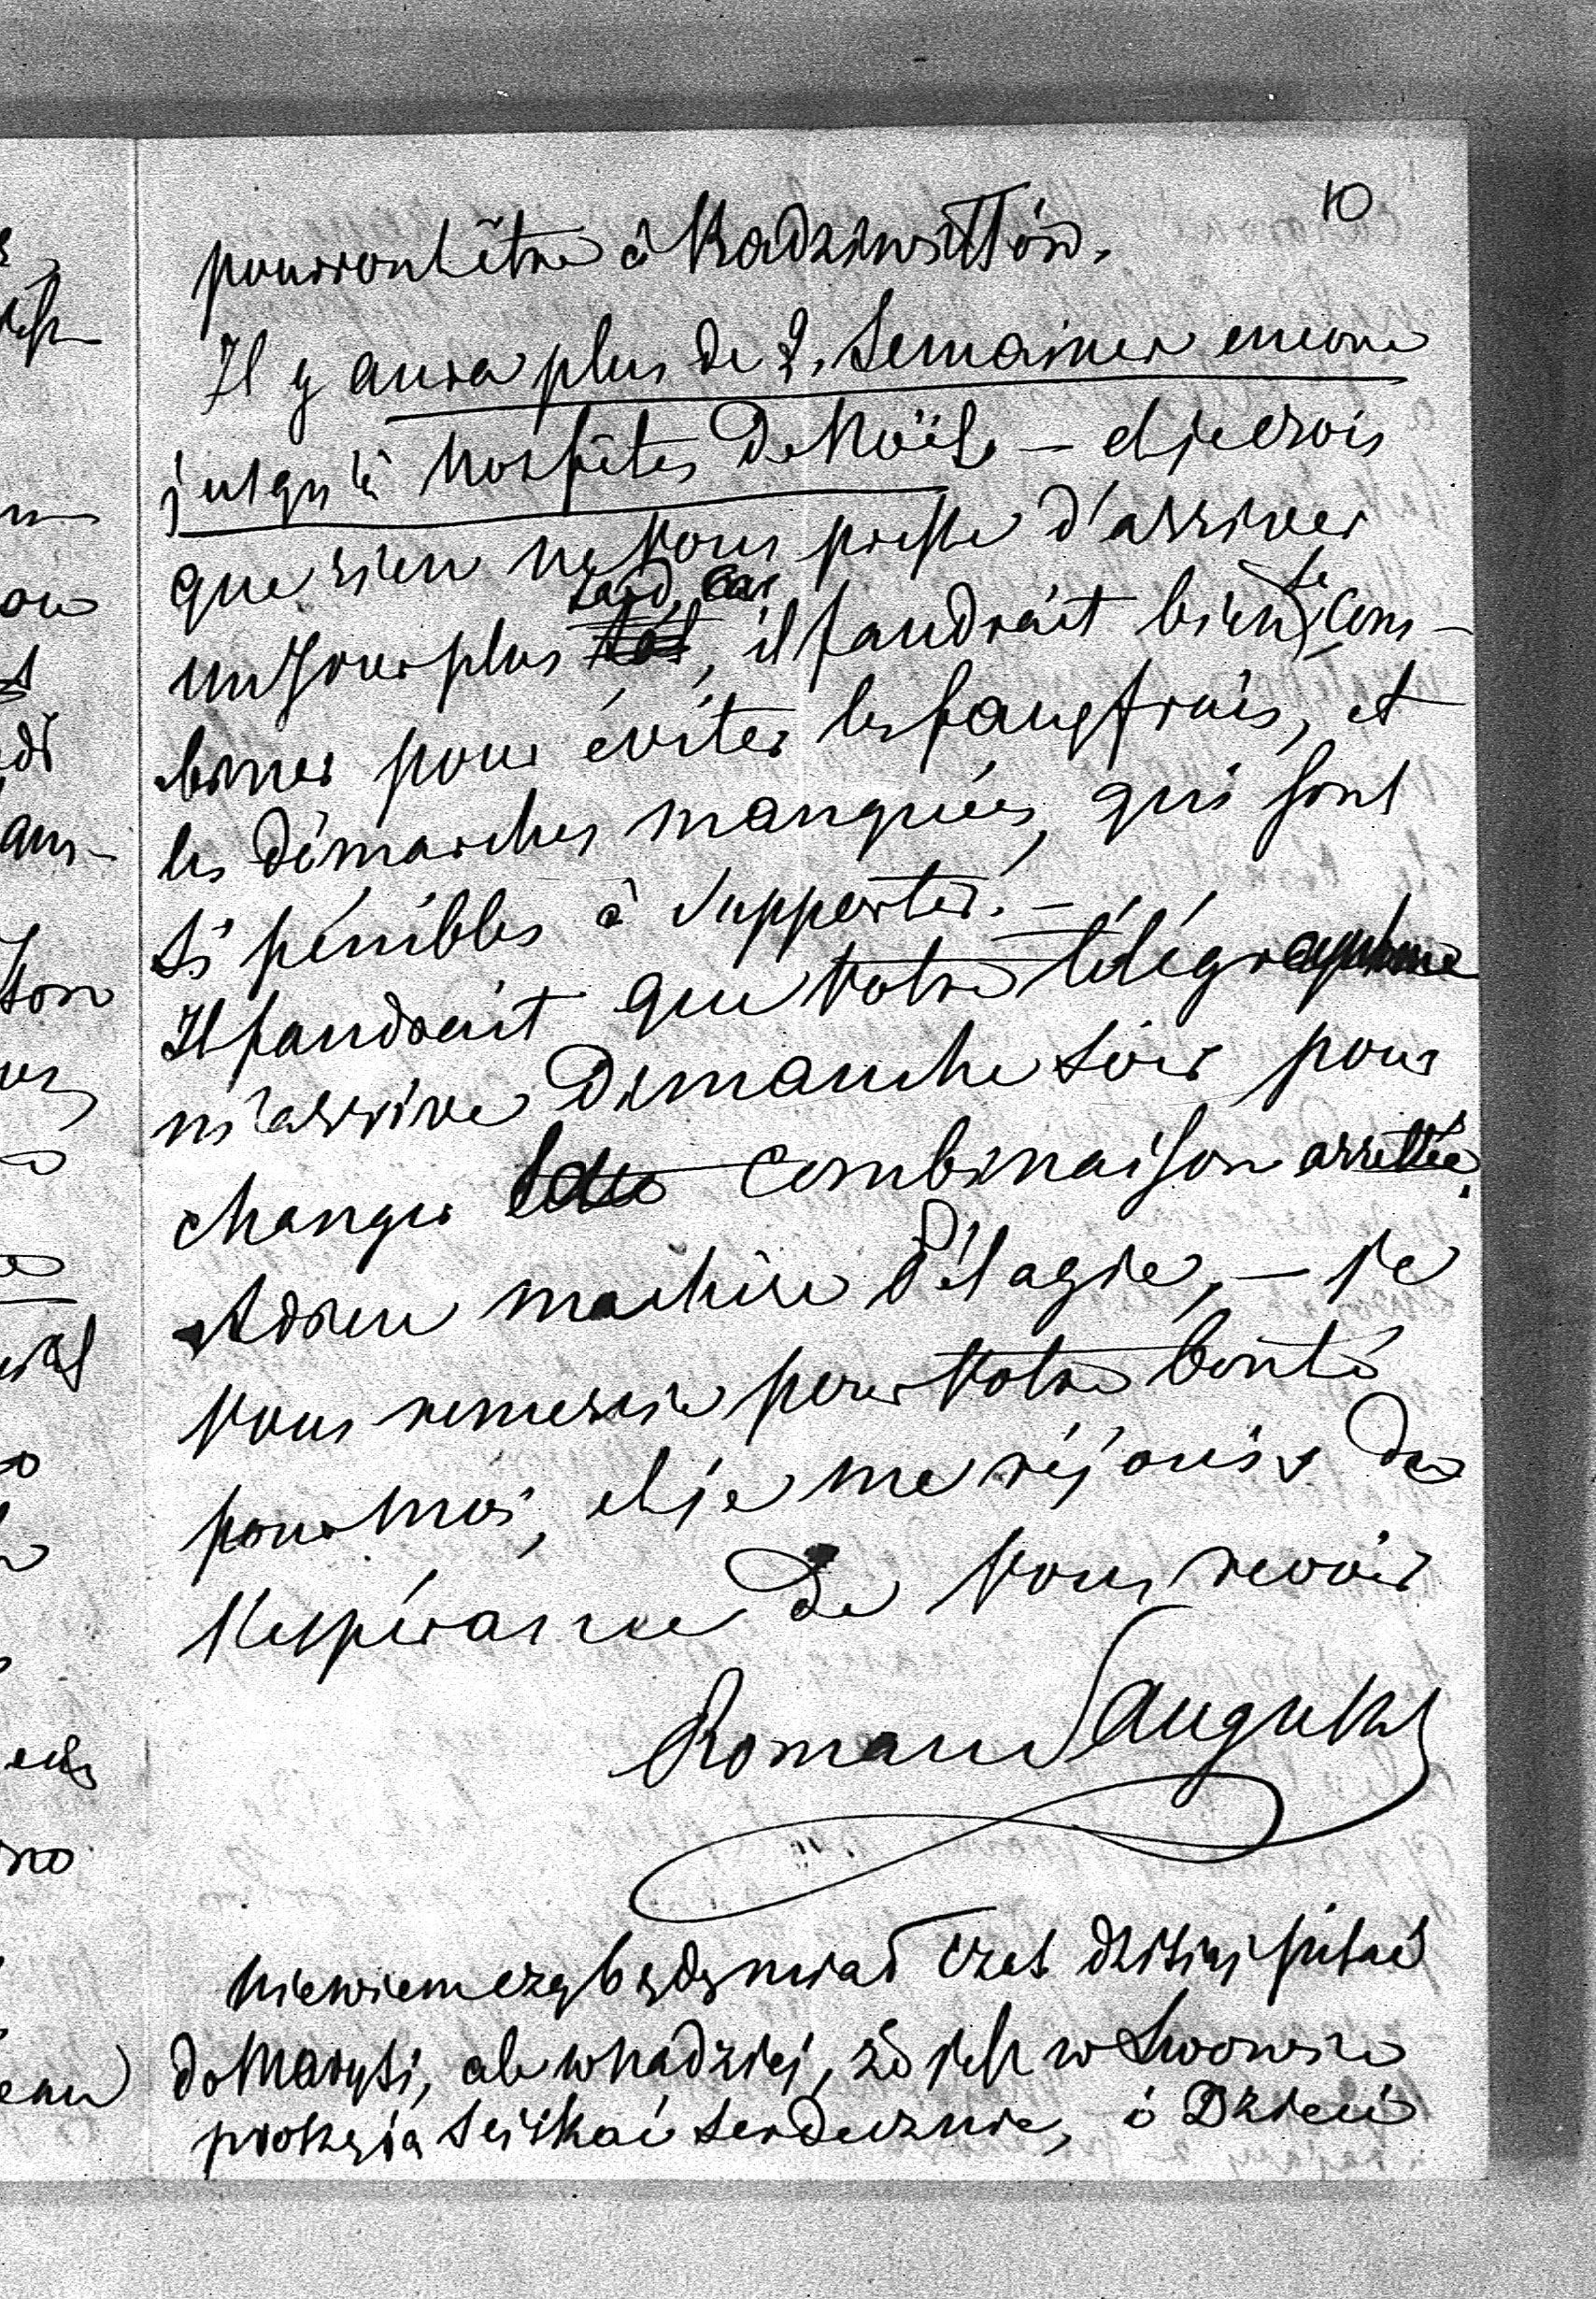 10
pourront être à Radziwiłłów.
Il y aura plus de 2. Semaines encore
jusqu'à nos fêtes de Noël. — et je crois
que rien ne vous presse d'arriver
tard, car
un jour plus tôt, il faudrait bien se com-
biner pour éviter les faux frais, et
les démarches manquées, qui sont
si pénibles à supporter. —
Il faudrait que votre télégramme
m'arrive Dimanche soir pour
changer la combinaison arrettée.
Adieu ma chère Pélagie, — je
vous remercie pour votre bonté
pour moi, et je me réjouis de
l'espérance de vous revoir
Roman Sanguszko
niewiem czy będę miał czas dzisiaj pisać
do Marysi, ale w nadziei, że jest w Lwowie
proszę ją uściskać serdecznie, i Dzieci